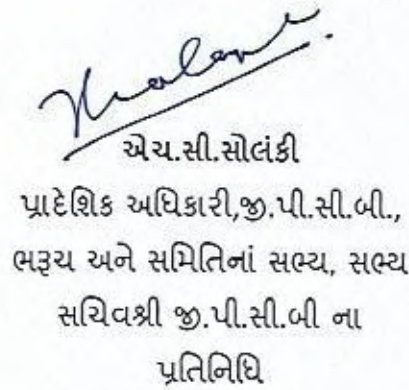 એચ.સી.સોલંકી
પ્રાદેશિક અધિકારી,જી.પી.સી.બી.,
ભરૂચ અને સમિતિનાં સભ્ય, સભ્ય
સચિવશ્રી જી.પી.સી.બી ના
પ્રતિનિધિ